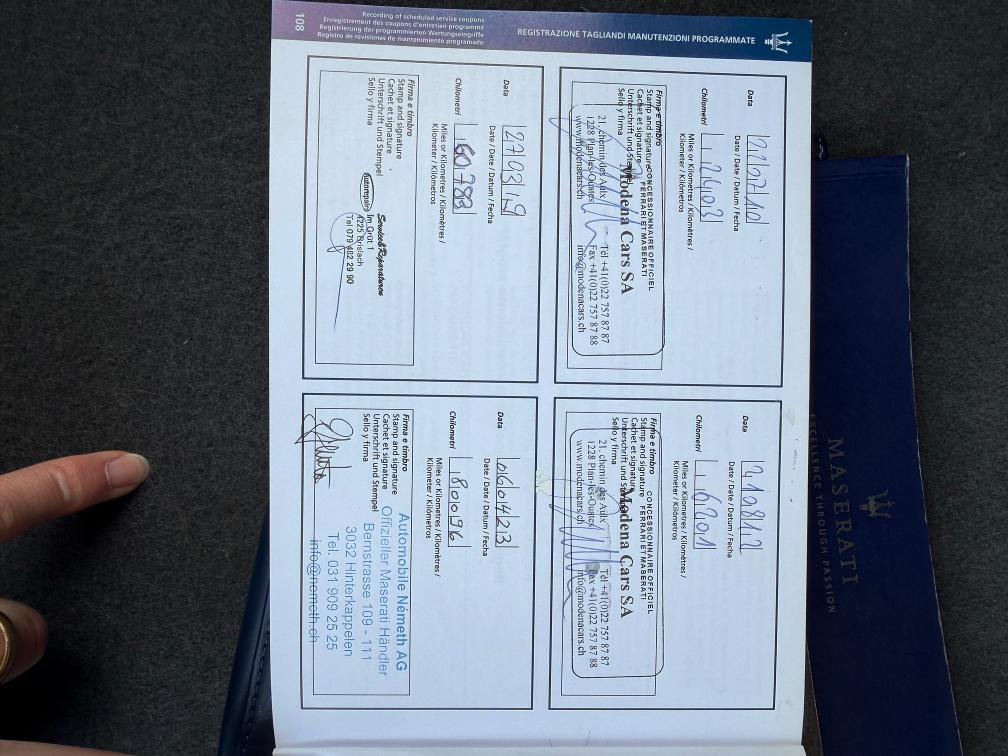 REGISTRAZIONE TAGLIANDI MANUTENZIONI PROGRAMMATE
Recording of scheduled service coupons
Enregistrement des coupons d'entretien programmé
Registrierung der programmierten Wartungseingriffe
Registro de revisiones de mantenimiento programado
108
Data
22/07/10
Date / Date / Datum / Fecha
Chilometri
Miles or Kilometres / Kilomètres /
Kilometer / Kilómetros
Firma e timbro
Stamp and signature
Cachet et signature
Unterschrift und Stempel
Sello y firma
CONCESSIONNAIRE OFFICIEL
FERRARI ET MASERATI
Modena Cars SA
21, chemin des Aulx Tél +41(0)22 757 87 87
1228 Plan-les-Ouates Fax +41(0)22 757 87 88
www.modenacars.ch info@modenacars.ch
Data
21 08 12
Date / Date / Datum / Fecha
Chilometri
Miles or Kilometres / Kilomètres /
Kilometer / Kilómetros
Firma e timbro
Stamp and signature
Cachet et signature
Unterschrift und Stempel
Sello y firma
CONCESSIONNAIRE OFFICIEL
FERRARI ET MASERATI
Modena Cars SA
21, chemin des Aulx Tél +41(0)22 757 87 87
1228 Plan-les-Ouates Fax +41(0)22 757 87 88
www.modenacars.ch info@modenacars.ch
Data
27 03 19
Date / Date / Datum / Fecha
Chilometri
Miles or Kilometres / Kilomètres /
Kilometer / Kilómetros
Firma e timbro
Stamp and signature
Cachet et signature
Unterschrift und Stempel
Sello y firma
Service & Reparaturen
Im Grüt 1
4225 Brislach
Tel 079 482 29 90
Data
06 04 23
Date / Date / Datum / Fecha
Chilometri
Miles or Kilometres / Kilomètres /
Kilometer / Kilómetros
Firma e timbro
Stamp and signature
Cachet et signature
Unterschrift und Stempel
Sello y firma
Automobile Németh AG
Offizieller Maserati Händler
Bernstrasse 109 - 111
3032 Hinterkappelen
Tel. 031 909 25 25
info@nemeth.ch
MASERATI
EXCELLENCE THROUGH PASSION